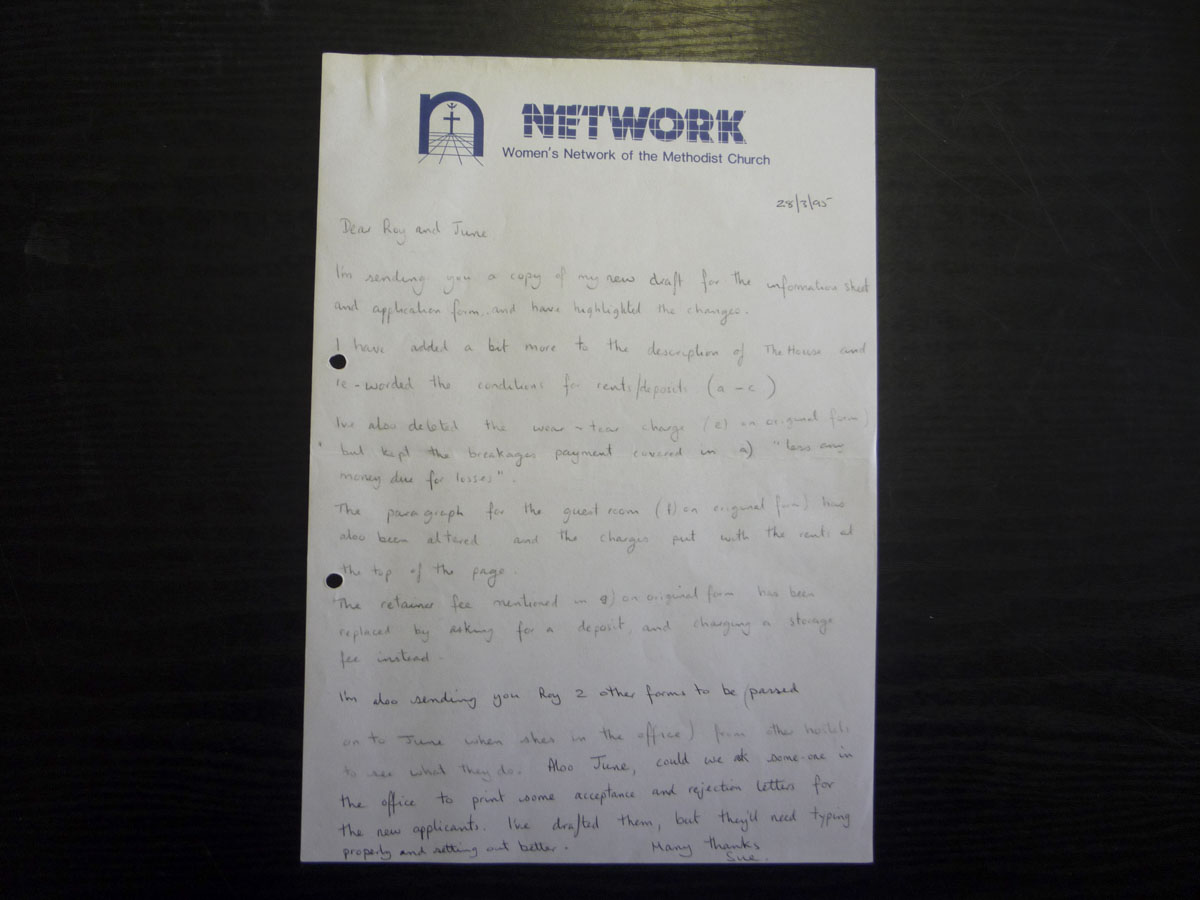 NETWORK
Women's Network of the Methodist Church
28/3/95
Dear Roy and June
I'm sending you a copy of my new draft for the information sheet
and application form..and have highlighted the changes.
I have added a bit more to the description of The House and
re-worded the conditions for rents/deposits (a-c)
I've also deleted the wear-tear charge (e) on original form)
but kept the breakages payment covered in a) "less any
money due for losses".
The paragraph for the guest room (f) on original form) has
also been altered and the charges put with the rents at
the top of the page.
The retainer fee mentioned in g) on original form has been
replaced by asking for a deposit, and charging a storage
fee instead.
I'm also sending you Roy 2 other forms to be (passed
on to June when shes in the office) from other hostels
to see what they do. Also June, could we ask some-one in
the office to print some acceptance and rejection letters for
the new applicants. I've drafted them, but they'd need typing
properly and setting out better. Many thanks
Sue.